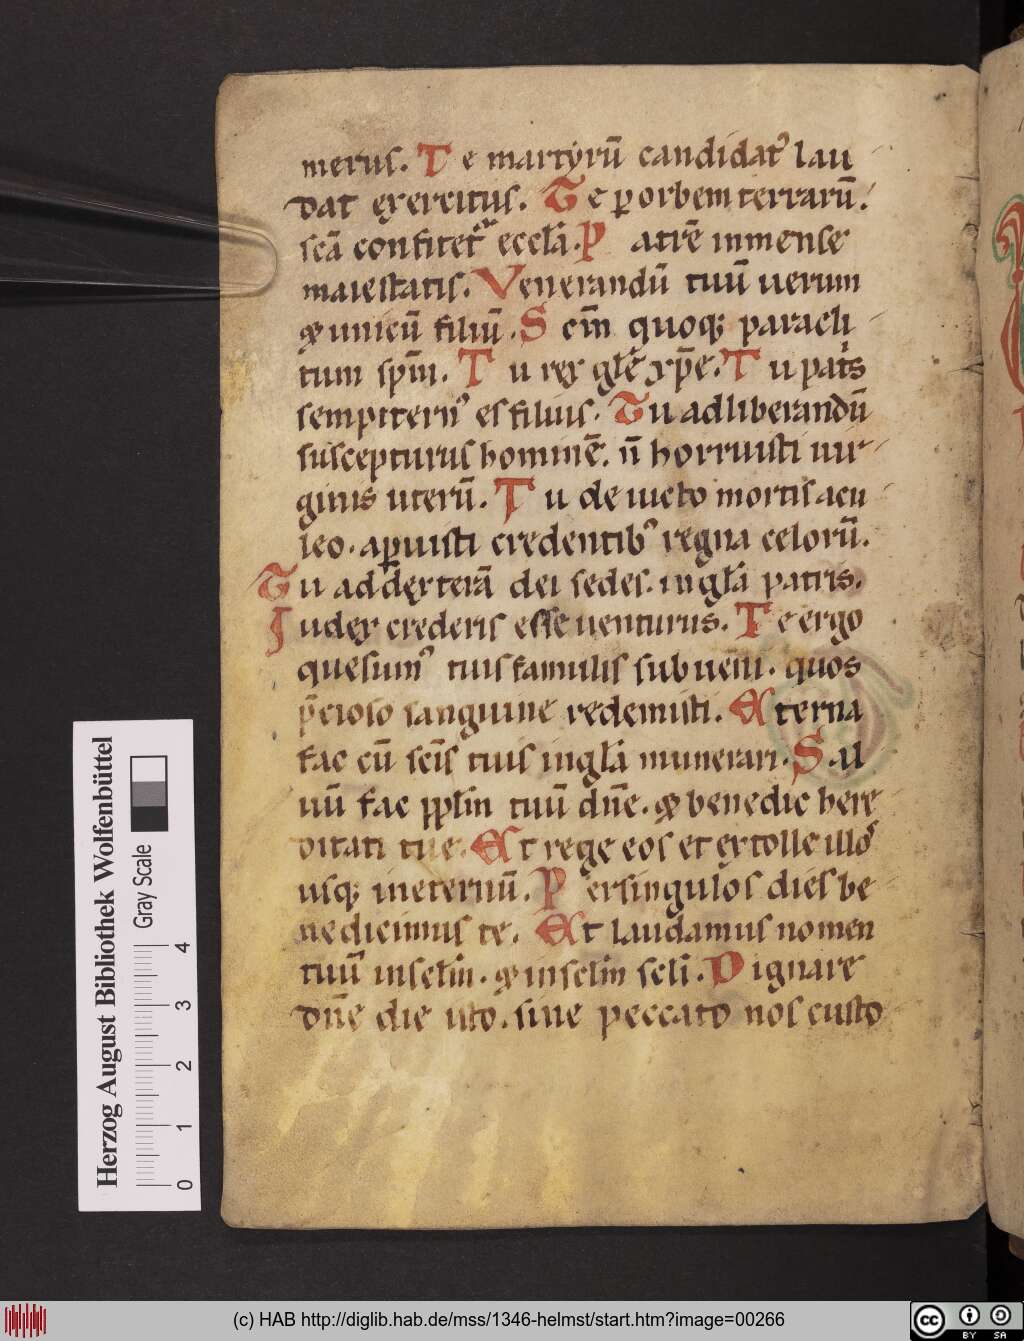 merus. Te martyrū candidat᾽ lau
dat exercitus. Te ꝑ orbem terrarū.
scā confitet᾽ ecclā. Patrē inmense
maiestatis. Venerandū tuū uerum
& unicū filiū. Scm̄ quoq; paracli
tum sp̄m. Tu rex glē xp̄e. Tu patr̄s
sempitern᾽ es filius. Tu adliberandū
suscepturus hominē. ñ horruisti uir
ginis uterū. Tu deuicto mortis acu
leo. aꝑuisti credentib᾽ regna celorū.
Tu addexterā dei sedes. inglā patris.
Iudex crederis esse uenturus. Te ergo
quesum᾽ tuis famulis subueni. quos
p̄cioso sanguine redemisti. Aeterna
fac cū scīs tuis inglā munerari. Sal
uū fac ppl̄m tuū dn̄e. & benedic here
ditati tue. Et rege eos et extolle illos
usq; ineternū. Per singulos dies be
nedicimus te. Et laudamus nomen
tuū insclm̄. & insclm̄ scli. Dignare
dn̄e die isto. sine peccato nos custo
Herzog August Bibliothek Wolfenbüttel
Gray Scale
0 1 2 3 4
(c) HAB http://diglib.hab.de/mss/1346-helmst/start.htm?image=00266
cc BY SA